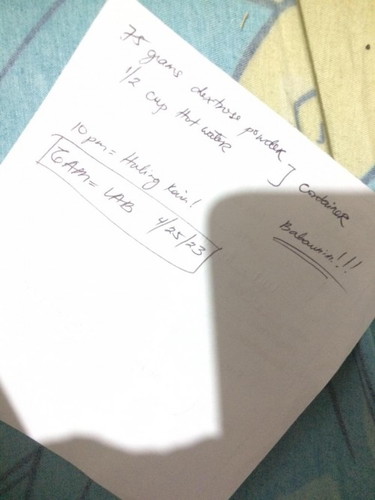 75 grams dextrose powder
1/2 cup Hot water
] container
Babaunin!!!
10 pm = Huling Kain!
6AM = LAB 4/25/23